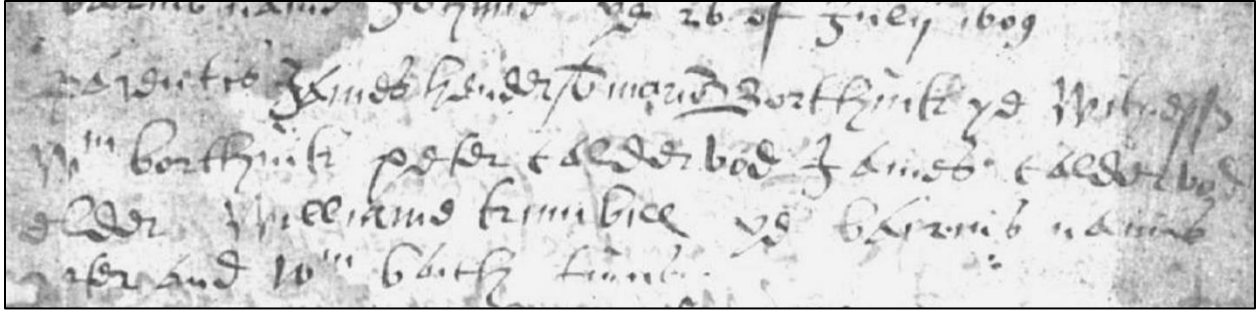 bairnis name Johnne ye 26 of Julij 1609
parentis James henderson marion Borthuik ye Witnessis
Wm borthuik peter caldervod James caldervod
elder Williame trumbill ye bairnis namis
peter and Wm baith tuins